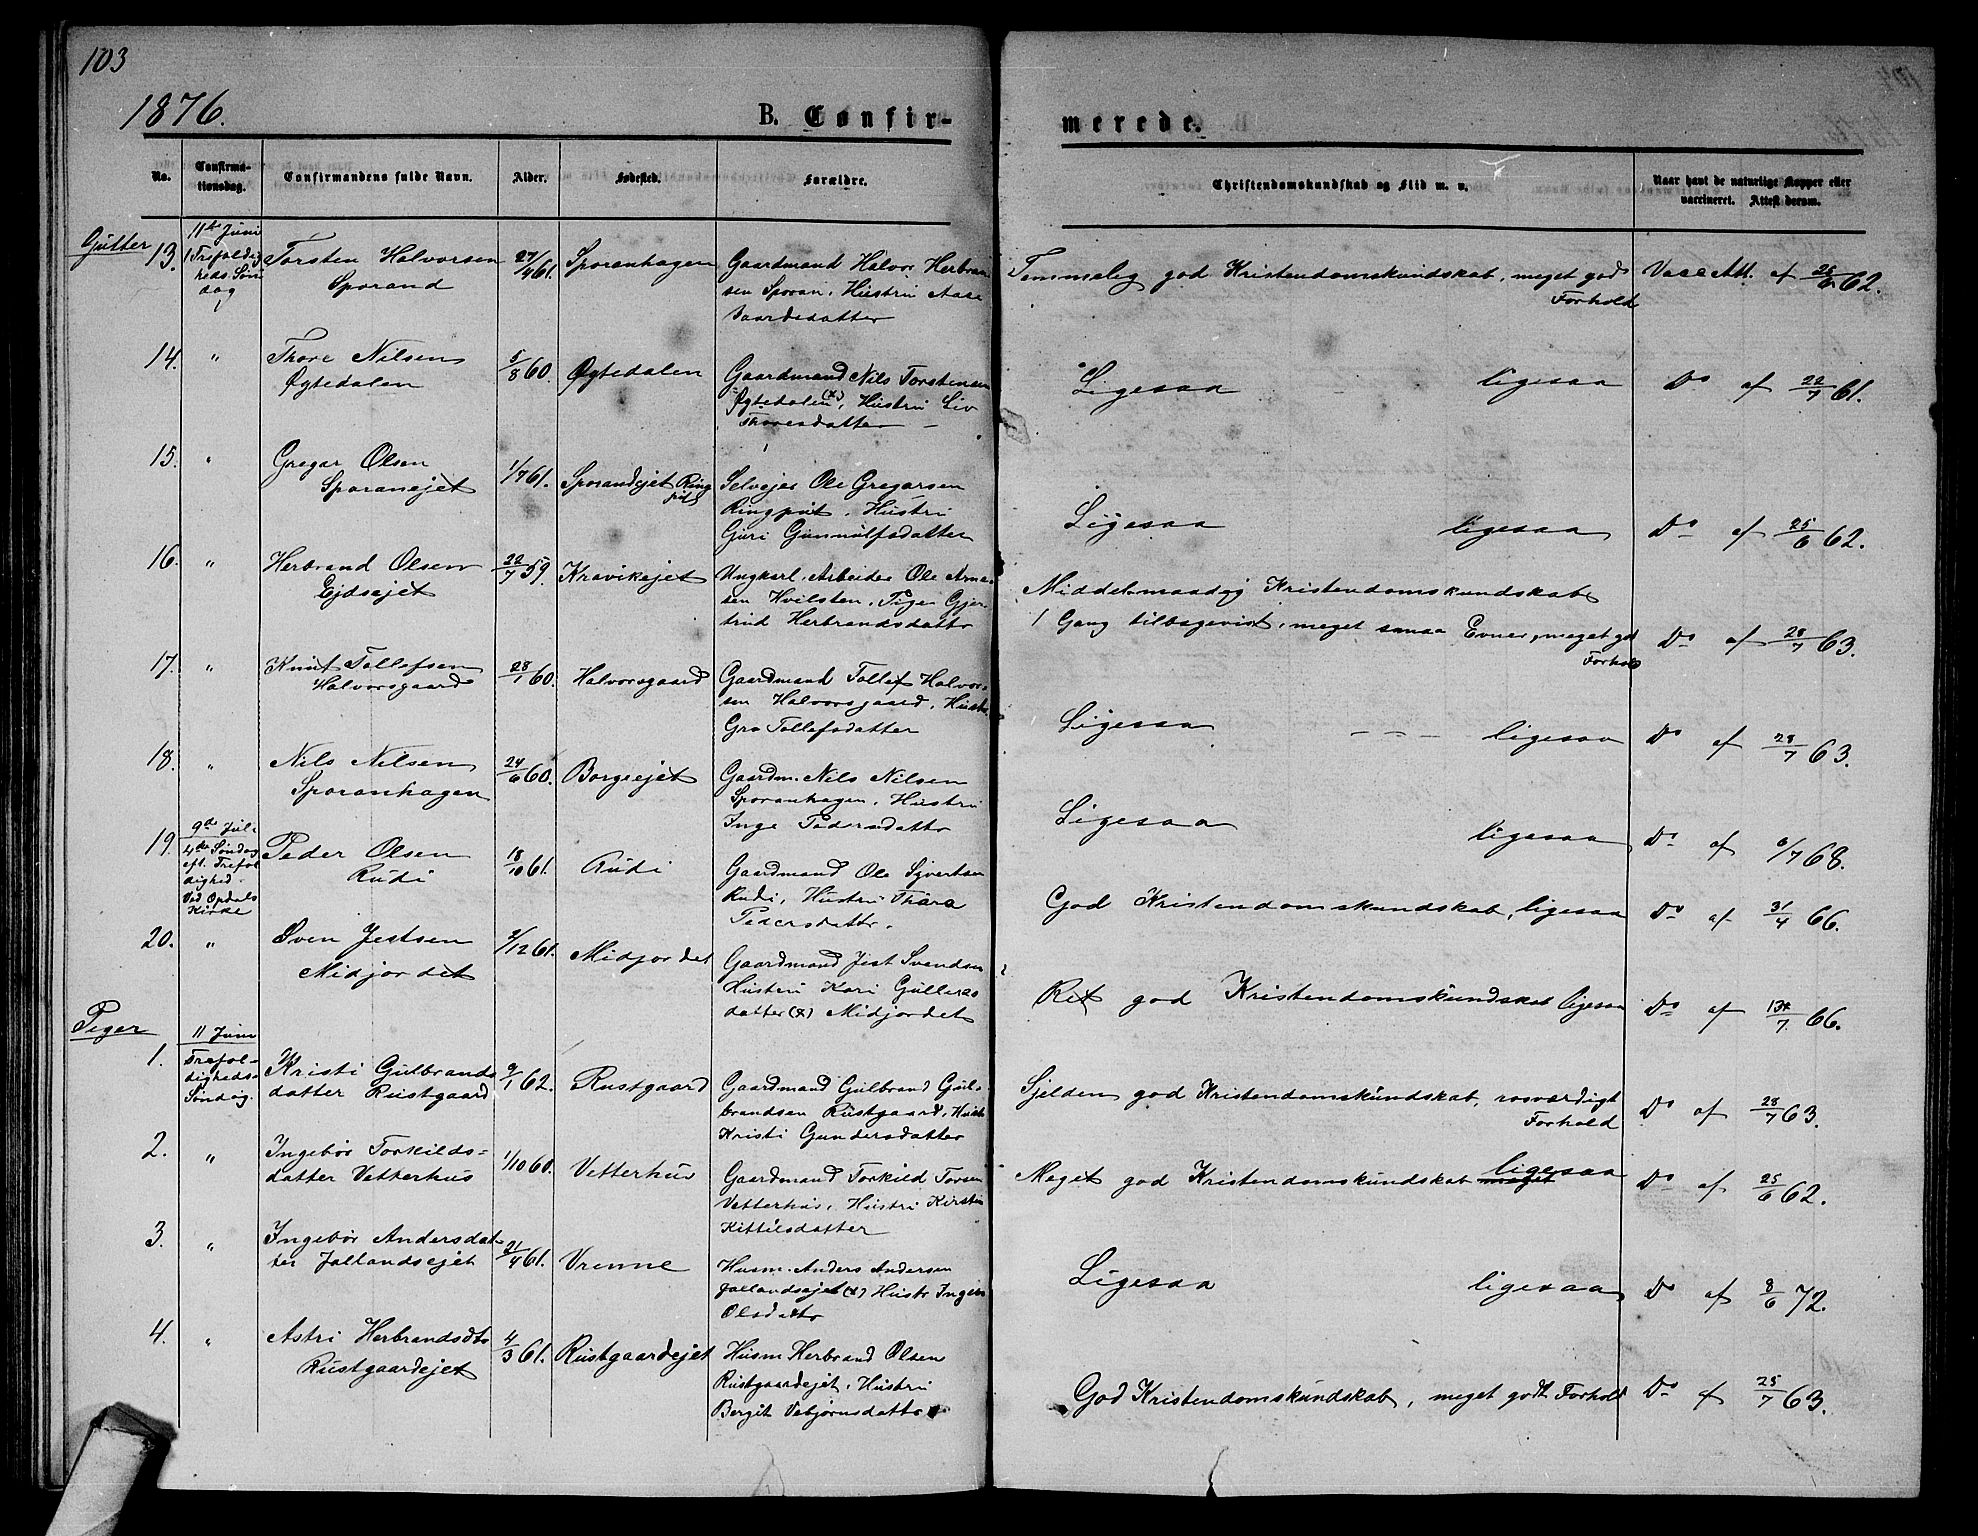 103
1876.
B. Confir-
merede.
No.
Confirma-
tionsdag.
Confirmandens fulde Navn.
Alder.
Fødested.
Forældre.
Christendomskundskab og Flid m. v.
Naar havt de naturlige Kopper eller
vaccineret. Attest derom.
Gutter
13.
11te Juni
Trefoldig
heds Søn
dag
Torsten Halvorsen
Sporand
27/4 61.
Sporanhagen
Gaardmand Halvor Herbran
sen Sporan, Hustru Aase
Vaardesdatter
Temmelig god Kristendomskundskab, meget god
Forhold
Vacc Att. af 25/6 62.
14.
"
Thore Nilsen
Øgtedalen
5/8 60.
Øgtedalen
Gaardmand Nils Torstensen
Øgtedalen (x), Hustru Liv
Thoresdatter
Ligesaa ligesaa
Do af 22/7 61.
15.
"
Gregar Olsen
Sporanejet
1/7 61.
Sporandejet Ring
pit
Selvejer Ole Gregarsen
Ringpit, Hustru
Guri Gunnulfsdatter
Ligesaa ligesaa
Do af 25/6 62.
16.
"
Herbrand Olsen
Ejdsejet
22/7 59.
Kravikejet
Ungkarl, Arbeider Ole Arne
sen Hvilsten, Pige Gjer
trud Herbrandsdatter
Middelmaadig Kristendomskundskab
1 Gang tilbagevist, meget smaa Evner, meget god
Forhold
Do af 28/7 63.
17.
"
Knut Tollefsen
Halvorsgaard
28/1 60.
Halvorsgaard
Gaardmand Tollef Halvor-
sen Halvorsgaard, Hustru
Gro Tollefsdatter
Ligesaa - - - ligesaa
Do af 28/7 63.
18.
"
Nils Nilsen
Sporanhagen
24/6 60.
Borgeejet
Gaardm. Nils Nilsen
Sporanhagen, Hustru
Inge Pedersdatter
Ligesaa ligesaa
Do af 6/7 68.
19.
9de Juli
4de Søndag
eft. Trefol
dighed
Ved Opdals
Kirke
Peder Olsen
Rudi
18/10 61.
Rudi
Gaardmand Ole Sjvertsen
Rudi, Hustru Thora
Pedersdatter.
God Kristendomskundskab, ligesaa
Do af 31/4 66.
20.
"
Sven Jestsen
Midjordet
2/12 61.
Midjordet
Gaardmand Jest Svendsen
Hustru Kari Gulleras
datter (x) Midjordet
Ret god Kristendomskundskab ligesaa
Do af 13/7 66.
Piger
1.
11 Juni
Trefol-
digheds-
Søndag.
Kristi Gulbrands
datter Rustgaard
9/1 62.
Rustgaard
Gaardmand Gulbrand Gul-
brandsen Rustgaard, Hustr
Kristi Gundersdatter
Sjelden god Kristendomskundskab, rosværdigt
Forhold
Do af 28/7 63.
2.
"
Ingebør Torkilds-
datter Vetterhus
1/10 60.
Vetterhus
Gaardmand Torkild Torsen
Vetterhus, Hustru Kirsti
Kittilsdatter
Meget god Kristendomskundskab meget ligesaa
Do af 25/6 62.
3.
"
Ingebør Andersdat-
ter Jallandsejet
21/4 61.
Vrenne
Husm. Anders Andersen
Jallandsejet (x) Hustr Inger
Olsdatter
Ligesaa ligesaa
Do af 8/6 72.
4.
"
Astri Herbrandsdtr
Rustgaardejet
4/3 61.
Rustgaardejet
Husm Herbrand Olsen
Rustgaardejet, Hustru
Bergit Vebjørnsdatter
God Kristendomskundskab, meget godt Forhold
Do af 25/7 63.